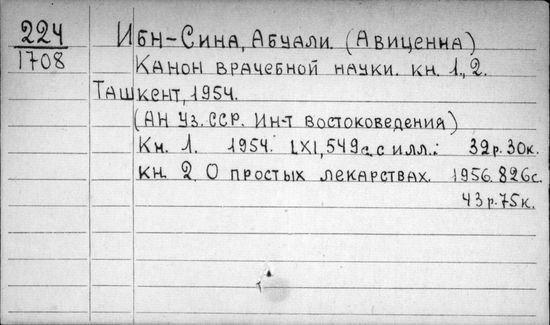 224
1708
Ибн-Сина, Абуали. (Авиценна)
Канон врачебной науки. кн. 1., 2.
Ташкент, 1954.
(АН Уз. ССР. Ин-т востоковедения)
Кн. 1. 1954. LXI, 549 с. с илл.: 32р. 30к.
кн. 2. О простых лекарствах. 1956. 826с.
43р. 75к.